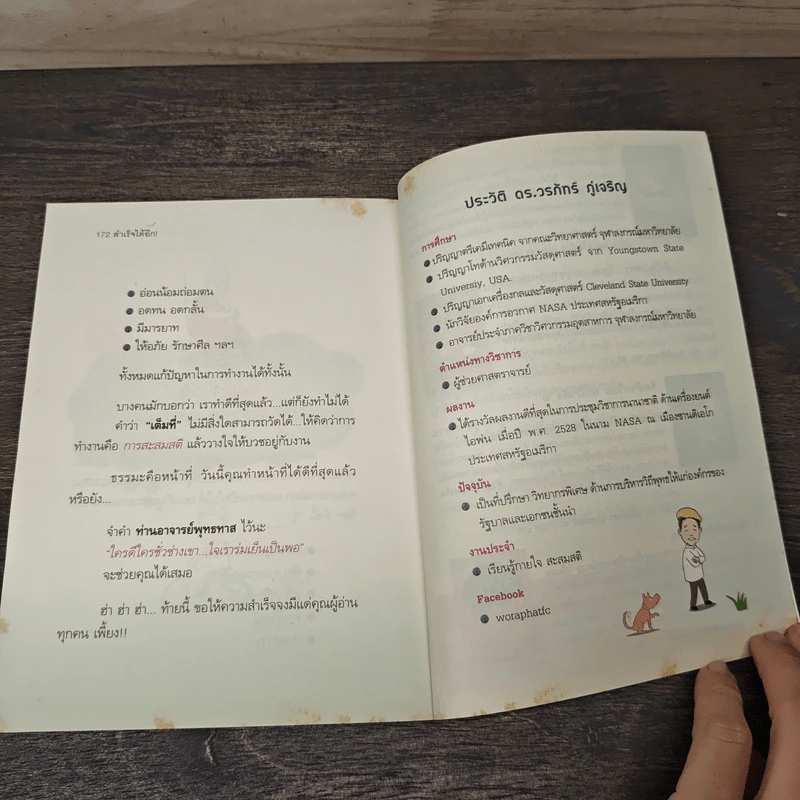 172 สำเร็จได้อีก!
● อ่อนน้อมถ่อมตน
● อดทน อดกลั้น
● มีมารยาท
● ให้อภัย รักษาศีล ฯลฯ
ทั้งหมดแก้ปัญหาในการทำงานได้ทั้งนั้น
บางคนมักบอกว่า เราทำดีที่สุดแล้ว...แต่ก็ยังทำไม่ได้
คำว่า “เต็มที่” ไม่มีสิ่งใดสามารถวัดได้...ให้คิดว่าการ
ทำงานคือ การสะสมสติ แล้ววางใจให้บวชอยู่กับงาน
ธรรมะคือหน้าที่ วันนี้คุณทำหน้าที่ได้ดีที่สุดแล้ว
หรือยัง...
จำคำ ท่านอาจารย์พุทธทาส ไว้นะ
“ใครดีใครชั่วช่างเขา...ใจเราร่มเย็นเป็นพอ”
จะช่วยคุณได้เสมอ
ฮ่า ฮ่า ฮ่า... ท้ายนี้ ขอให้ความสำเร็จจงมีแด่คุณผู้อ่าน
ทุกคน เพี้ยง!!
ประวัติ ดร.วรภัทร์ ภู่เจริญ
การศึกษา
● ปริญญาตรีเคมีเทคนิค จากคณะวิทยาศาสตร์ จุฬาลงกรณ์มหาวิทยาลัย
● ปริญญาโทด้านวิศวกรรมวัสดุศาสตร์ จาก Youngstown State
University, USA.
● ปริญญาเอกเครื่องกลและวัสดุศาสตร์ Cleveland State University
● นักวิจัยองค์การอวกาศ NASA ประเทศสหรัฐอเมริกา
● อาจารย์ประจำภาควิชาวิศวกรรมอุตสาหการ จุฬาลงกรณ์มหาวิทยาลัย
ตำแหน่งทางวิชาการ
● ผู้ช่วยศาสตราจารย์
ผลงาน
● ได้รางวัลผลงานดีที่สุดในการประชุมวิชาการนานาชาติ ด้านเครื่องยนต์
ไอพ่น เมื่อปี พ.ศ. 2528 ในนาม NASA ณ เมืองซานดิเอโก
ประเทศสหรัฐอเมริกา
ปัจจุบัน
● เป็นที่ปรึกษา วิทยากรพิเศษ ด้านการบริหารวิถีพุทธให้แก่องค์กรของ
รัฐบาลและเอกชนชั้นนำ
งานประจำ
● เรียนรู้กายใจ สะสมสติ
Facebook
● woraphatfc